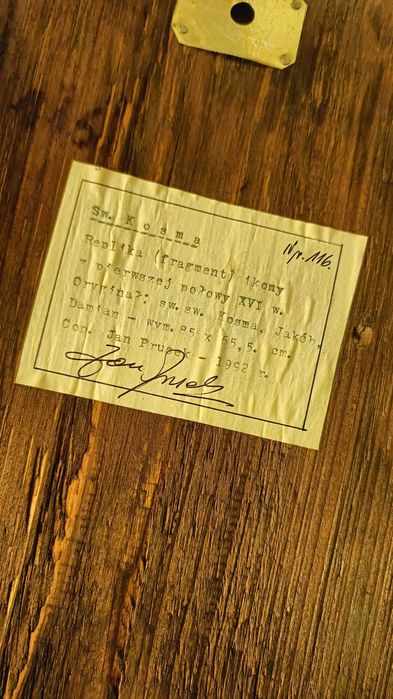 Św. K o s m a
Nr. 116.
Replika (fragment) ikony
z pierwszej połowy XVI w.
Oryginał: św. św. Kosma, Jakób,
Damian - wym. 85 x 65,5. cm.
Con. Jan Prusek - 1992 r.